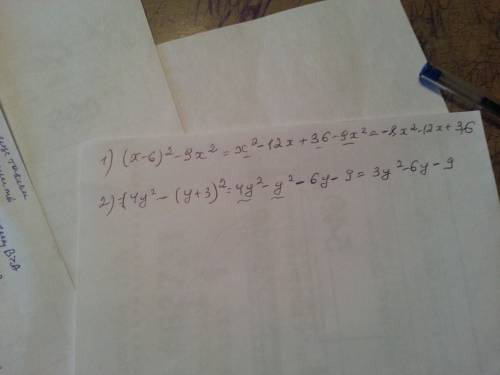 1) (x-6)² - 9x² = x² - 12x + 36 - 9x² = -8x² - 12x + 36
2) 4y² - (y+3)² = 4y² - y² - 6y - 9 = 3y² - 6y - 9